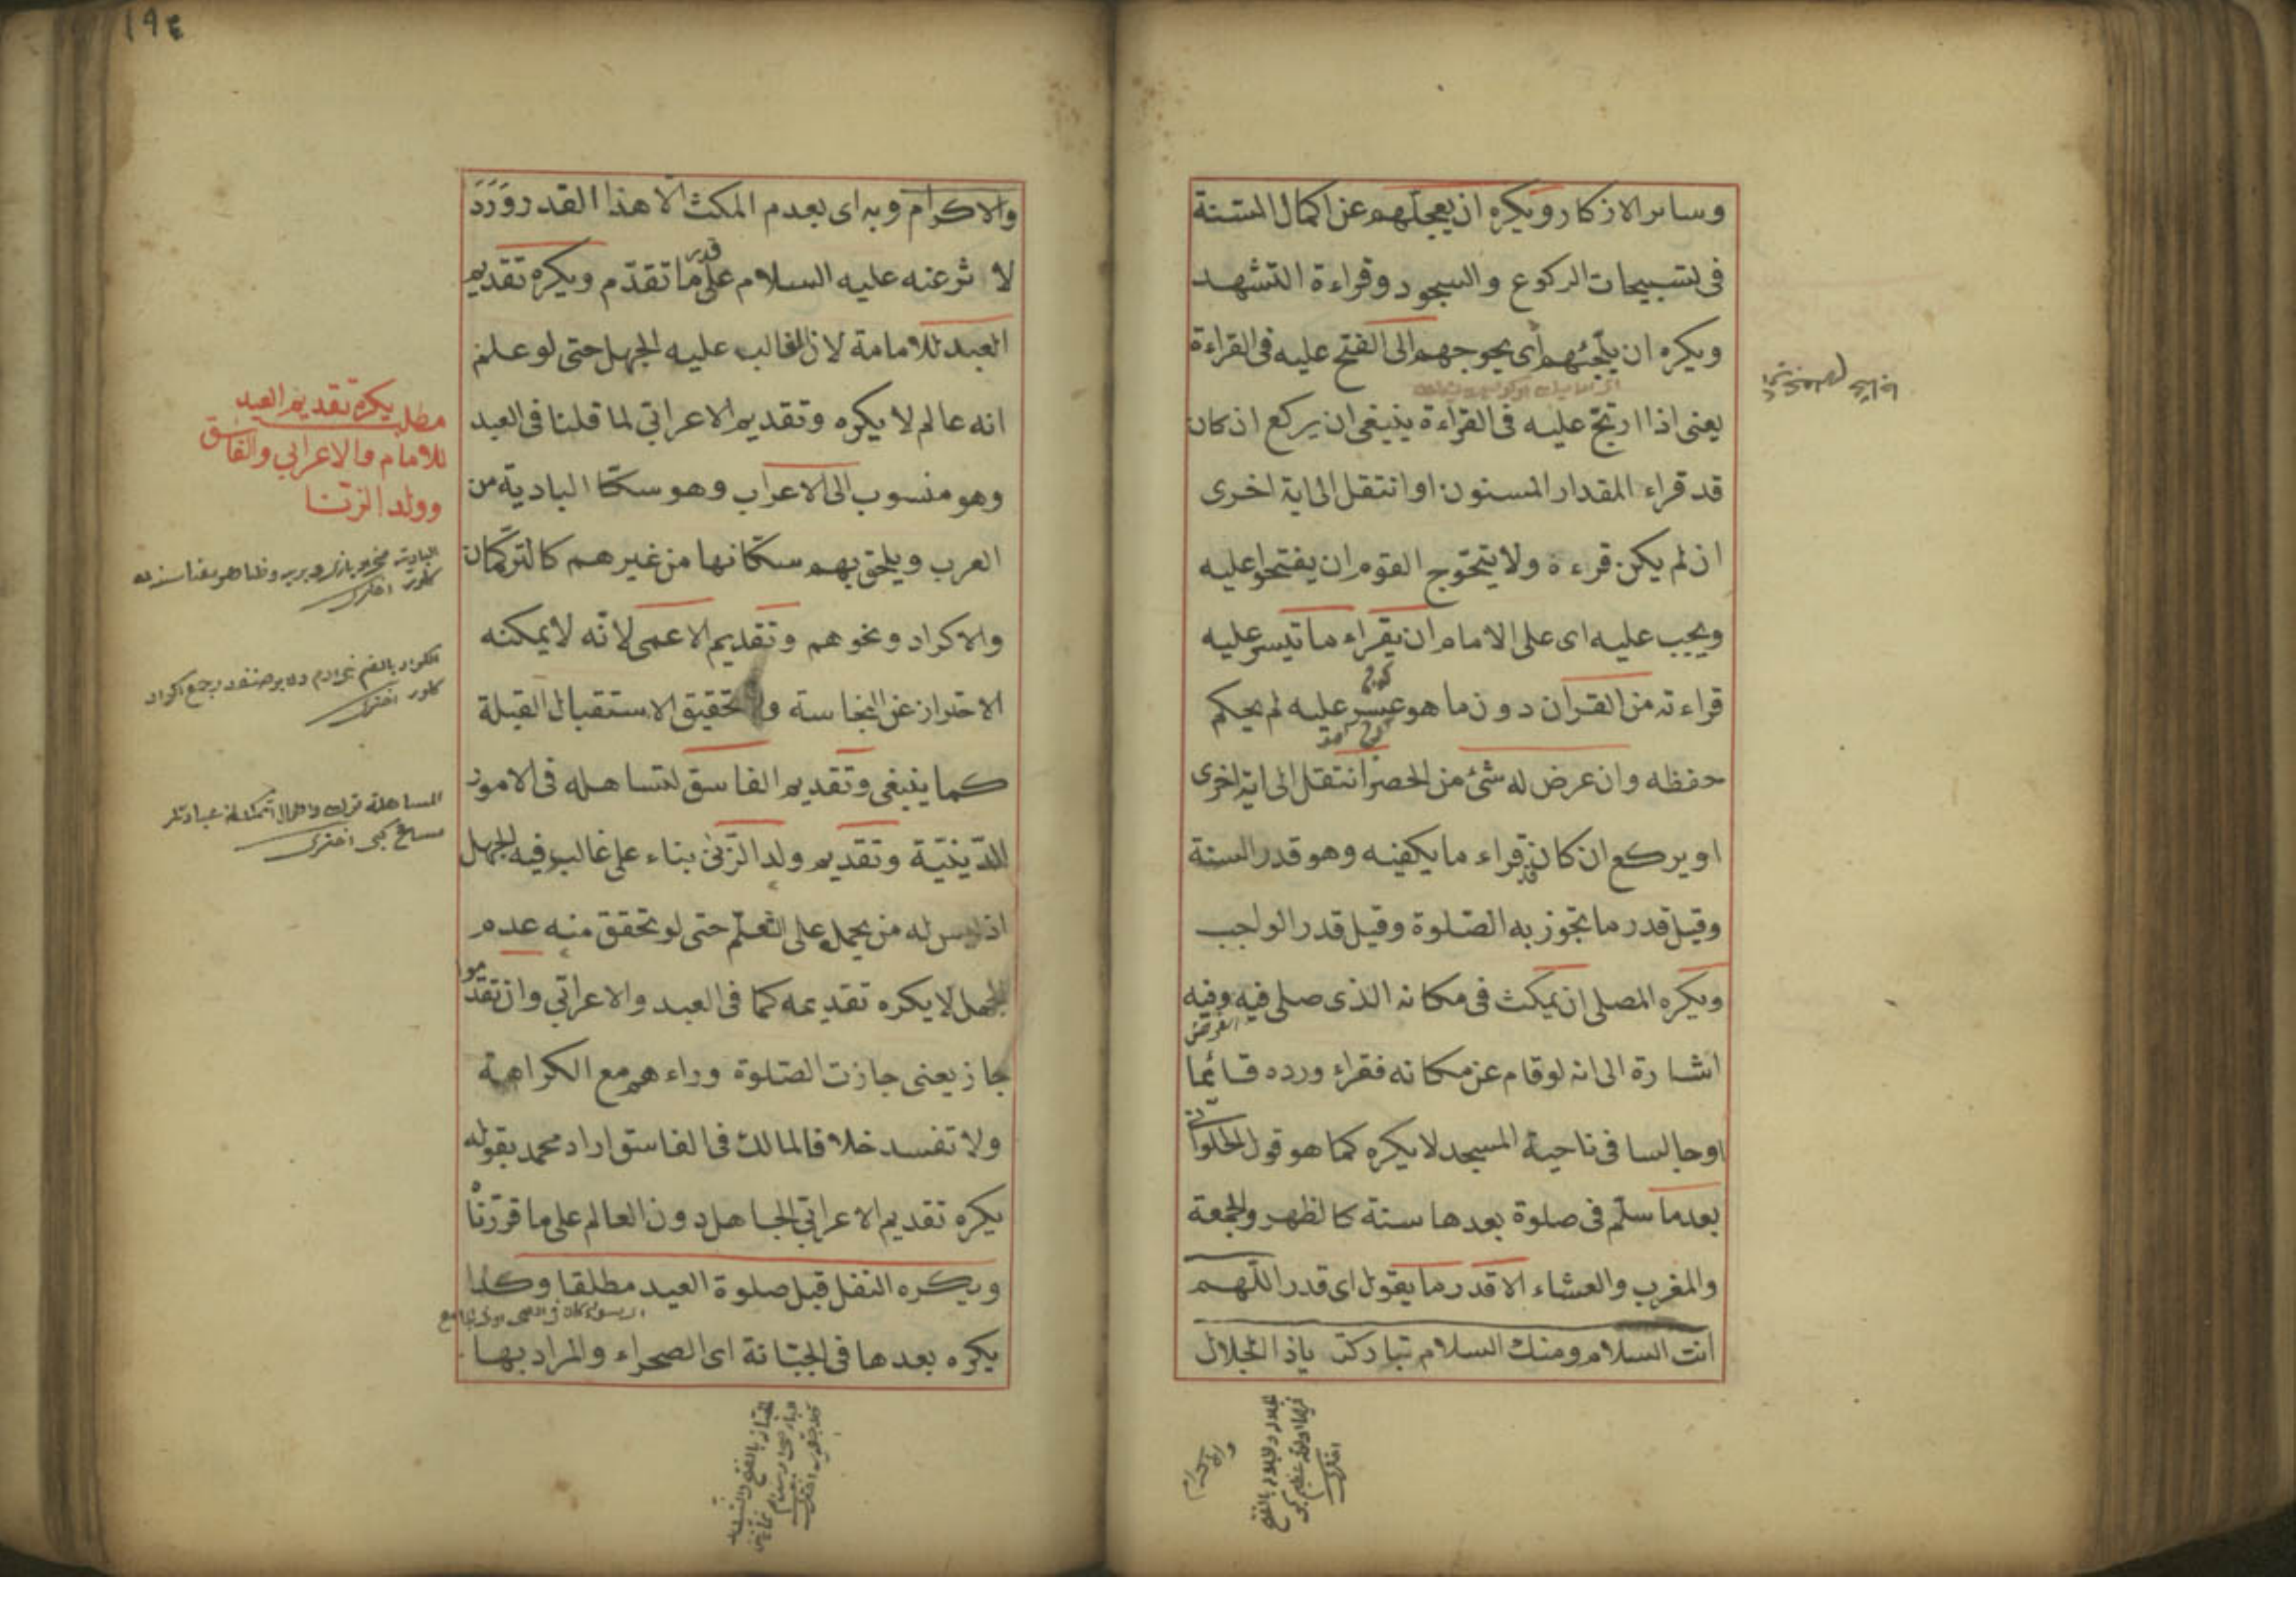 وسائر الاذكار ويكره ان يعجلهم عن اكمال السنة
فى تسبيحات الركوع والسجود وقراءة التشهد
ويكره ان يلجئهم اى يحوجهم الى الفتح عليه فى القراءة
يعنى اذا ارتج عليه فى القراءة ينبغى ان يركع ان كان
قد قراء المقدار المسنون او انتقل الى اية اخرى
ان لم يكن قرءة ولا يتحوّج القوم ان يفتحوا عليه
ويجب عليه اى على الامام ان يقراء ما تيسر عليه
قراءته من القرآن دون ما هو عسر عليه لم يحكم
حفظه وان عرض له شئ من الحصر انتقل الى اية اخرى
او يركع ان كان قد قراء ما يكفيه وهو قدر السنة
وقيل قدر ما تجوز به الصّلوة وقيل قدر الواجب
ويكره المصلى ان يمكث فى مكانه الذى صلى فيه وفيه
الفرض
اشارة الى انه لو قام عن مكانه فقراء ورده قائما
اوجالسا فى ناحية المسجد لا يكره كما هو قول الحلوانى
بعد ما سلّم فى صلوة بعدها سنة كالظهر والجمعة
والمغرب والعشاء الا قدر ما يقول اى قدر اللّهم
انت السلام ومنك السلام تباركت ياذا الجلال
١٩٤
والاكرام وبه اى بعدم المكث الا هذا القدر وَرَدَ
لا ثر عنه عليه السلام على قدر ما تقدّم ويكره تقديم
العبد للامامة لان الغالب عليه الجهل حتى لو علم
انه عالم لا يكره وتقديم الاعرابّي لما قلنا فى العبد
وهو منسوب الى الاعراب وهو سكّا البادية من
العرب ويلحق بهم سكّانها من غيرهم كالتركمان
والاكراد ونحوهم وتقديم الاعمى لانّه لا يمكنه
الاحتراز عن النجاسة ولا تحقيق الاستقبال القبلة
كما ينبغى وتقديم الفاسق لتساهله فى الامور
الدّينيّة وتقديم ولد الزّنى بناء على غالب فيه الجهل
اذ ليس له من يحمله على التّعلّم حتى لو تحقق منه عدم
الجهل لا يكره تقديمه كما فى العبد والاعرابّي وان تقدّموا
جاز يعنى جازت الصّلوة وراءهم مع الكراهة
ولا تفسد خلافا لمالك فى الفاسق اراد محمد بقوله
يكره تقديم الاعرابّي الجاهل دون العالم على ما قرّرنا
ويكره التنفل قبل صلوة العيد مطلقا وكذا
يكره بعدها فى الجبّانة اى الصحراء والمراد بها
مطلب يكره تقديم العبد
للامام والاعرابي والفاسق
وولد الزّنا